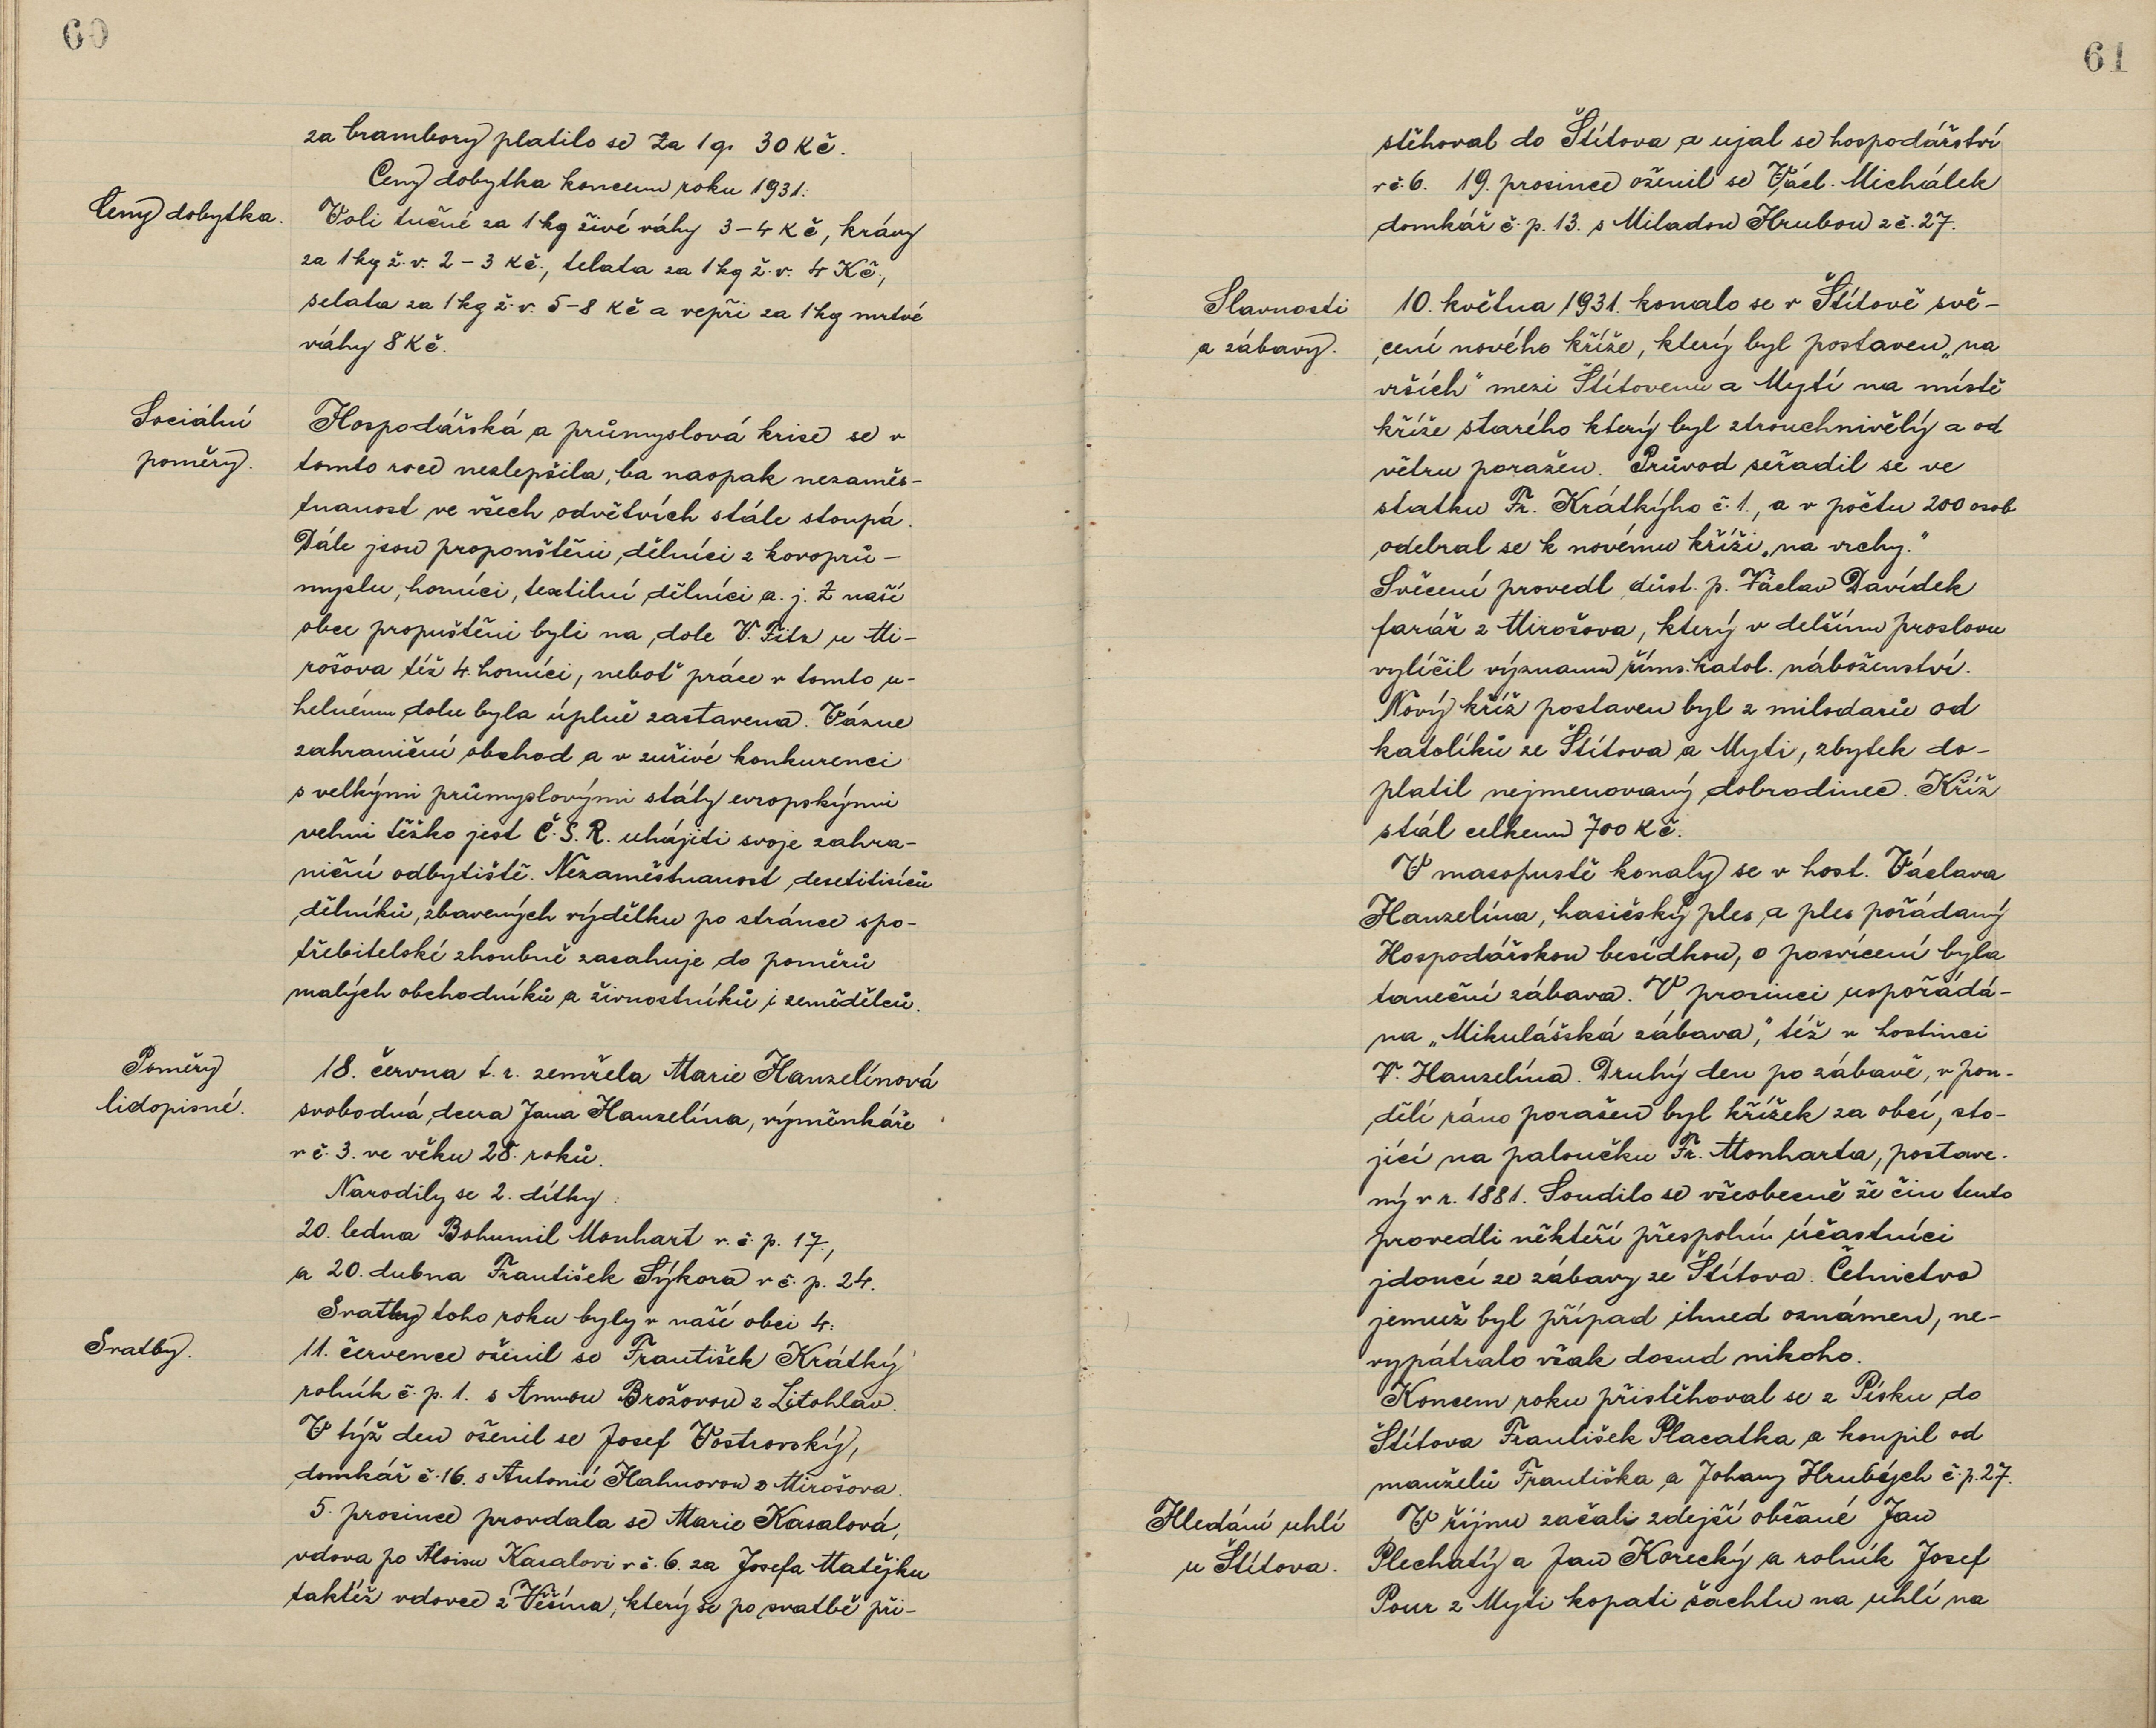 60
za brambory platilo se za 1 q. 30 Kč.
Ceny dobytka koncem roku 1931.
Ceny dobytka.
Voli tučné za 1 kg živé váhy 3-4 Kč, krávy
za 1 kg ž. v. 2-3 Kč., telata za 1 kg ž. v. 4 Kč.,
selata za 1 kg ž. v. 5-8 Kč a vepři za 1 kg mrtvé
váhy 8 Kč.
Sociální
poměry.
Hospodářská a průmyslová krise se v
tomto roce nezlepšila, ba naopak nezaměs-
tnanost ve všech odvětvích stále stoupá.
Dále jsou propouštěni dělníci z kovoprů-
myslu, horníci, textilní dělníci a. j. Z naší
obce propuštěni byli na dole V. Fitz u Mi-
rošova též 4. horníci, neboť práce v tomto u-
helném dolu byla úplně zastavena. Vázne
zahraniční obchod a v zuřivé konkurenci
s velkými průmyslovými státy evropskými
velmi těžko jest Č. S. R. uhájiti svoje zahra-
niční odbytiště. Nezaměstnanost desetitisíců
dělníků, zbavených výdělku po stránce spo-
třebitelské zhoubně zasahuje do poměrů
malých obchodníků a živnostníků i zemědělců.
Poměry
lidopisné.
18. června t. r. zemřela Marie Hanzelínová
svobodná, dcera Jana Hanzelína, výměnkáře
v č. 3. ve věku 28. roků.
Narodily se 2. dítky:
20. ledna Bohumil Monhart v. č. p. 17.,
a 20. dubna František Sýkora v č. p. 24.
Svatby toho roku byly v naší obci 4:
Svatby.
11. července oženil se František Krátký
rolník č. p. 1. s Annou Brožovou z Litohlav.
V týž den oženil se Josef Vostrovský,
domkář č. 16. s Antonií Hahnovou z Mirošova.
5. prosince provdala se Marie Kasalová,
vdova po Aloisu Kasalovi v č. 6. za Josefa Matějku
taktéž vdovce z Věšína, který se po svatbě při-
61
stěhoval do Štítova a ujal se hospodářství
v č. 6. 19. prosince oženil se Václ. Michálek
domkář č. p. 13. s Miladou Hrubou z č. 27.
Slavnosti
a zábavy.
10. května 1931. konalo se v Štítově svě-
cení nového kříže, který byl postaven „na
vrších" mezi Štítovem a Mytí na místě
kříže starého který byl ztrouchnivělý a od
větru poražen. Průvod seřadil se ve
statku Fr. Krátkýho č. 1., a v počtu 200 osob
odebral se k novému kříži „na vrchy."
Svěcení provedl důst. p. Václav Davídek
farář z Mirošova, který v delším proslovu
vylíčil význam říms. katol. náboženství.
Nový kříž postaven byl z milodarů od
katolíků ze Štítova a Myti, zbytek do-
platil nejmenovaný dobrodinec. Kříž
stál celkem 700 Kč.
V masopustě konaly se v host. Václava
Hanzelína, hasičský ples a ples pořádaný
Hospodářskou besídkou, o posvícení byla
taneční zábava. V prosinci uspořádá-
na „Mikulášská zábava", též v hostinci
V. Hanzelína. Druhý den po zábavě, v pon-
dělí ráno poražen byl křížek za obcí, sto-
jící na paloučku Fr. Monharta, postave-
ný v r. 1881. Soudilo se všeobecně že čin tento
provedli někteří přespolní účastníci
jdoucí ze zábavy ze Štítova. Četnictvo
jemuž byl případ ihned oznámen, ne-
vypátralo však dosud nikoho.
Koncem roku přistěhoval se z Písku do
Štítova František Placatka a koupil od
manželů Františka a Johany Hrubých č. p. 27.
Hledání uhlí
u Štítova.
V říjnu začali zdejší občané Jan
Plechatý a Jan Korecký a rolník Josef
Pour z Myti kopati šachtu na uhlí na